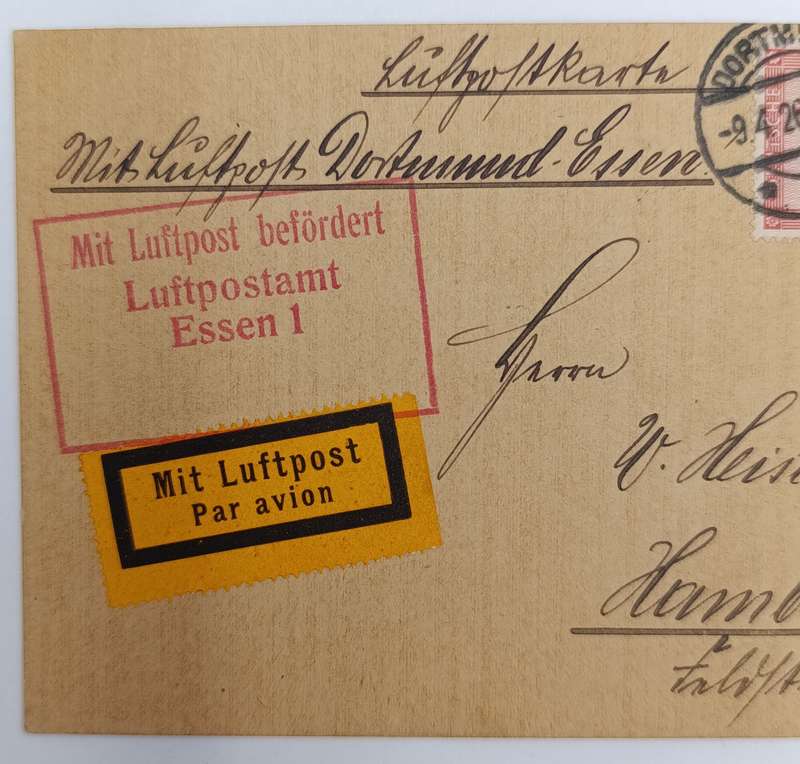 Luftpostkarte
Mit Luftpost Dortmund-Essen.
DORTM
-9.4.26
Mit Luftpost befördert
Luftpostamt
Essen 1
Herrn
W. Heis
Mit Luftpost
Par avion
Hamb
Feldst